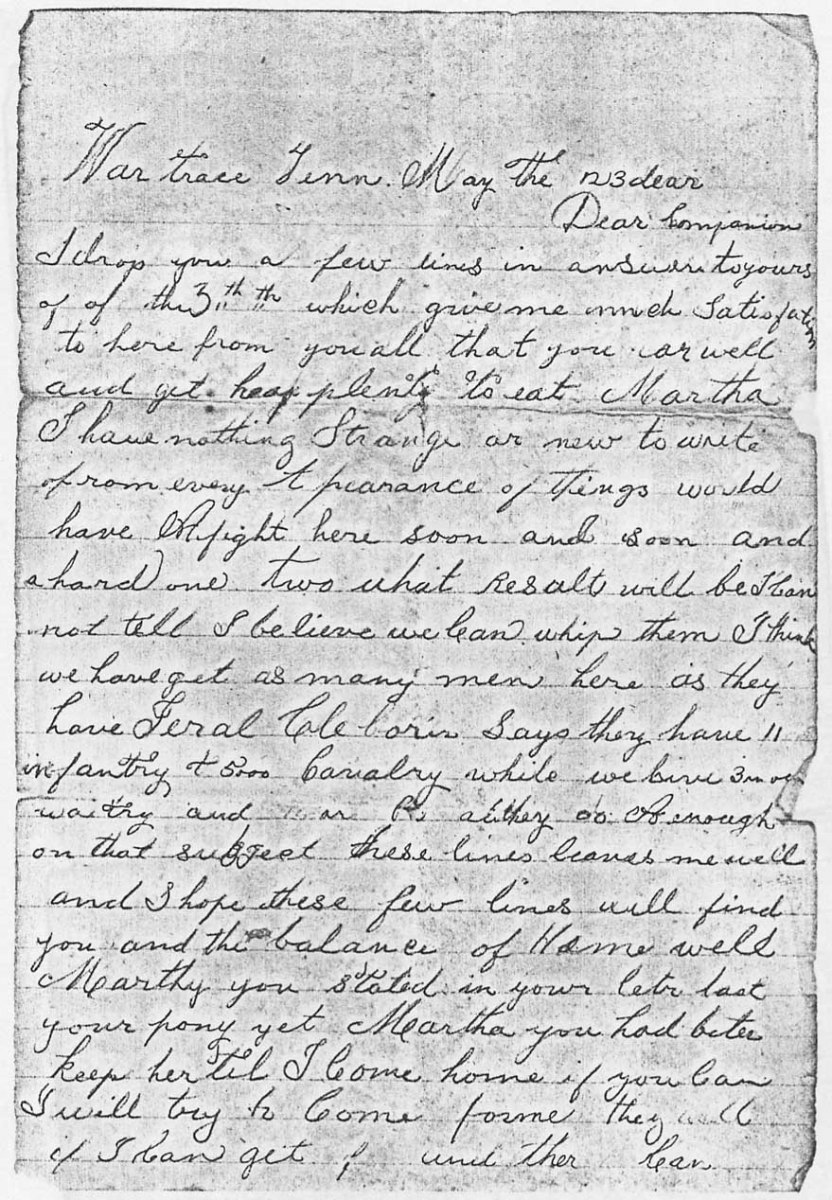 War trace Tenn. May the 23 dear
Dear Companion
I drop you a few lines in answer to yours
of of the which give me much Satisfation
to here from you all that you ar well
and get heap plenty to eat Martha
I have nothing Strange or new to write
from every of things would
have A fight here soon and soon and
a hard one two what Result will be I Can
not tell I believe we Can whip them I think
we have get as many men here as they
have says they have 11
infantry & 5000 Cavalry while we
and enough
on that subject these lines leaves me well
and I hope these few lines will find
you and the balance of Home well
Marthy you stated in your letr last
your pony yet Martha you had beter
keep her til I Come home if you Can
I will try to Come they
if I Can get Can